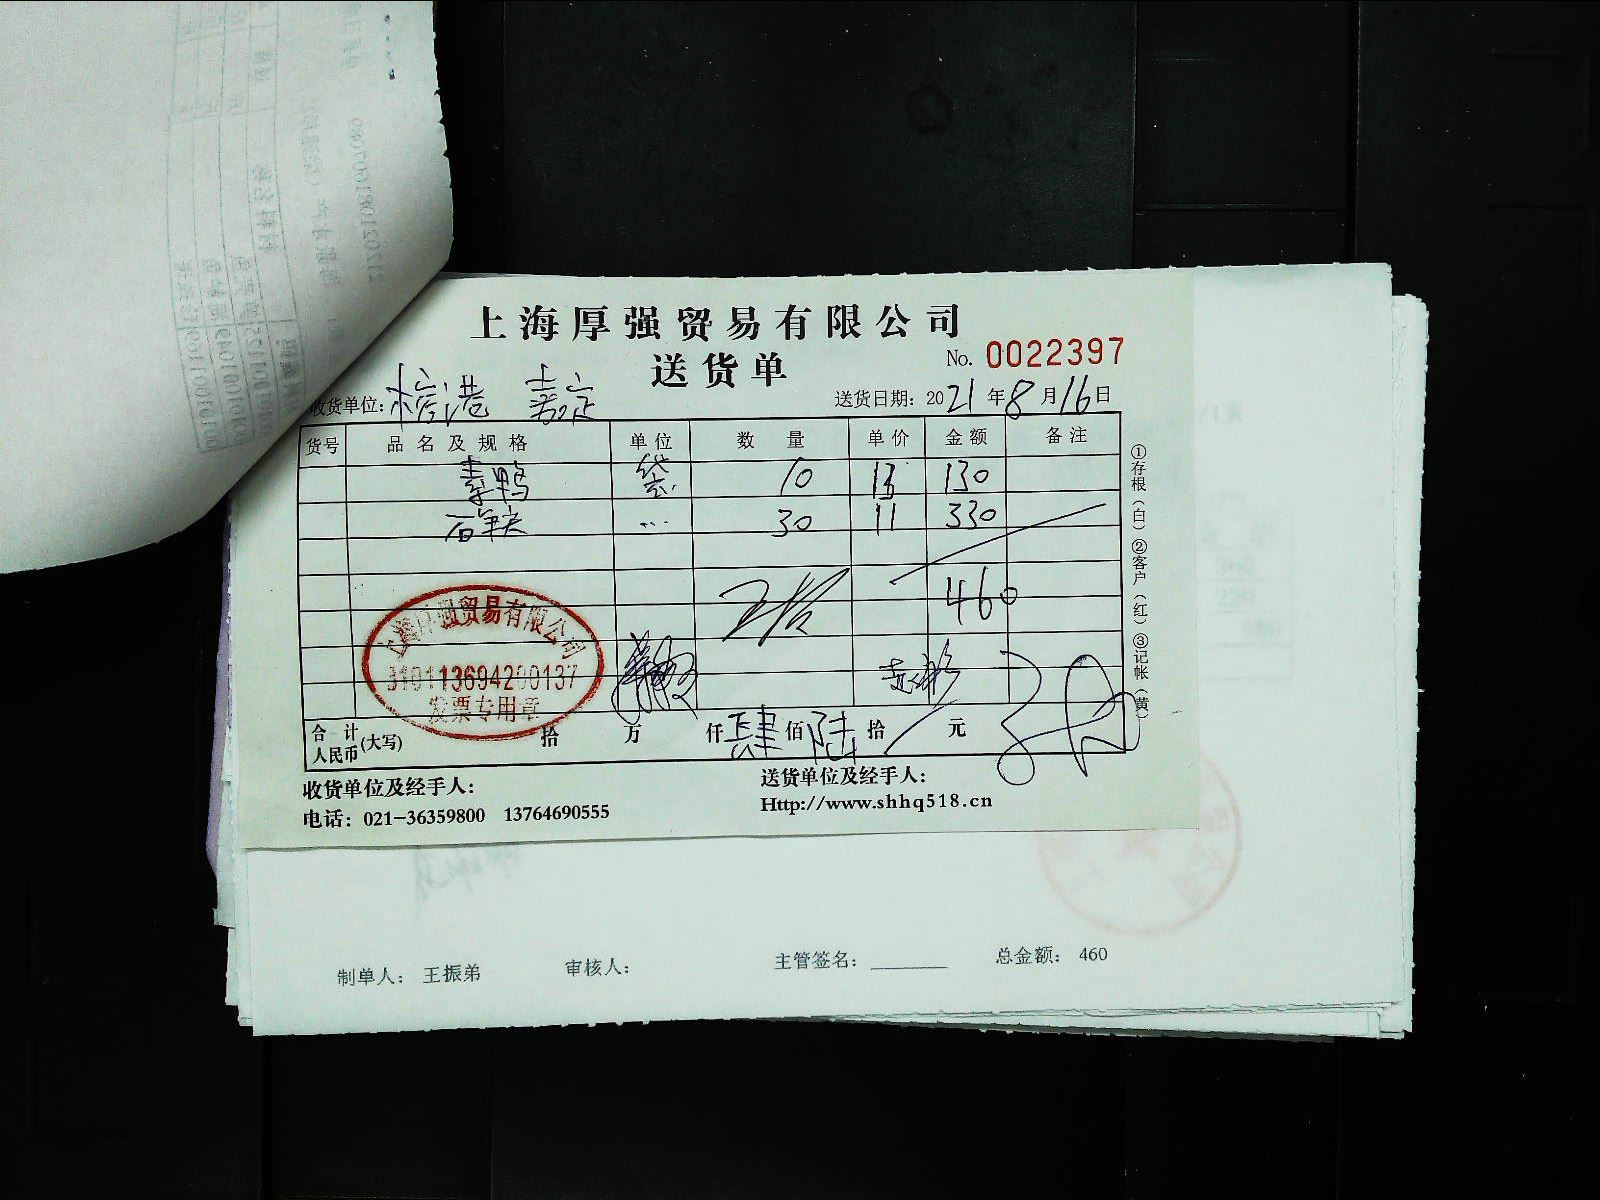 上海厚强贸易有限公司
送货单
No. 0022397
收货单位: 嘉定
送货日期: 2021年8月16日
货号 品名及规格 单位 数量 单价 金额 备注
素鸭 袋 10 13 130
30 11 330
460
上海厚强贸易有限公司
310113694200137
发票专用章
合计人民币(大写) 拾 万 仟 肆 佰 陆 拾 元
①存根(白) ②客户(红) ③记帐(黄)
收货单位及经手人:
送货单位及经手人:
电话: 021-36359800 13764690555
Http://www.shhq518.cn
制单人: 王振弟 审核人: 主管签名: ______ 总金额: 460